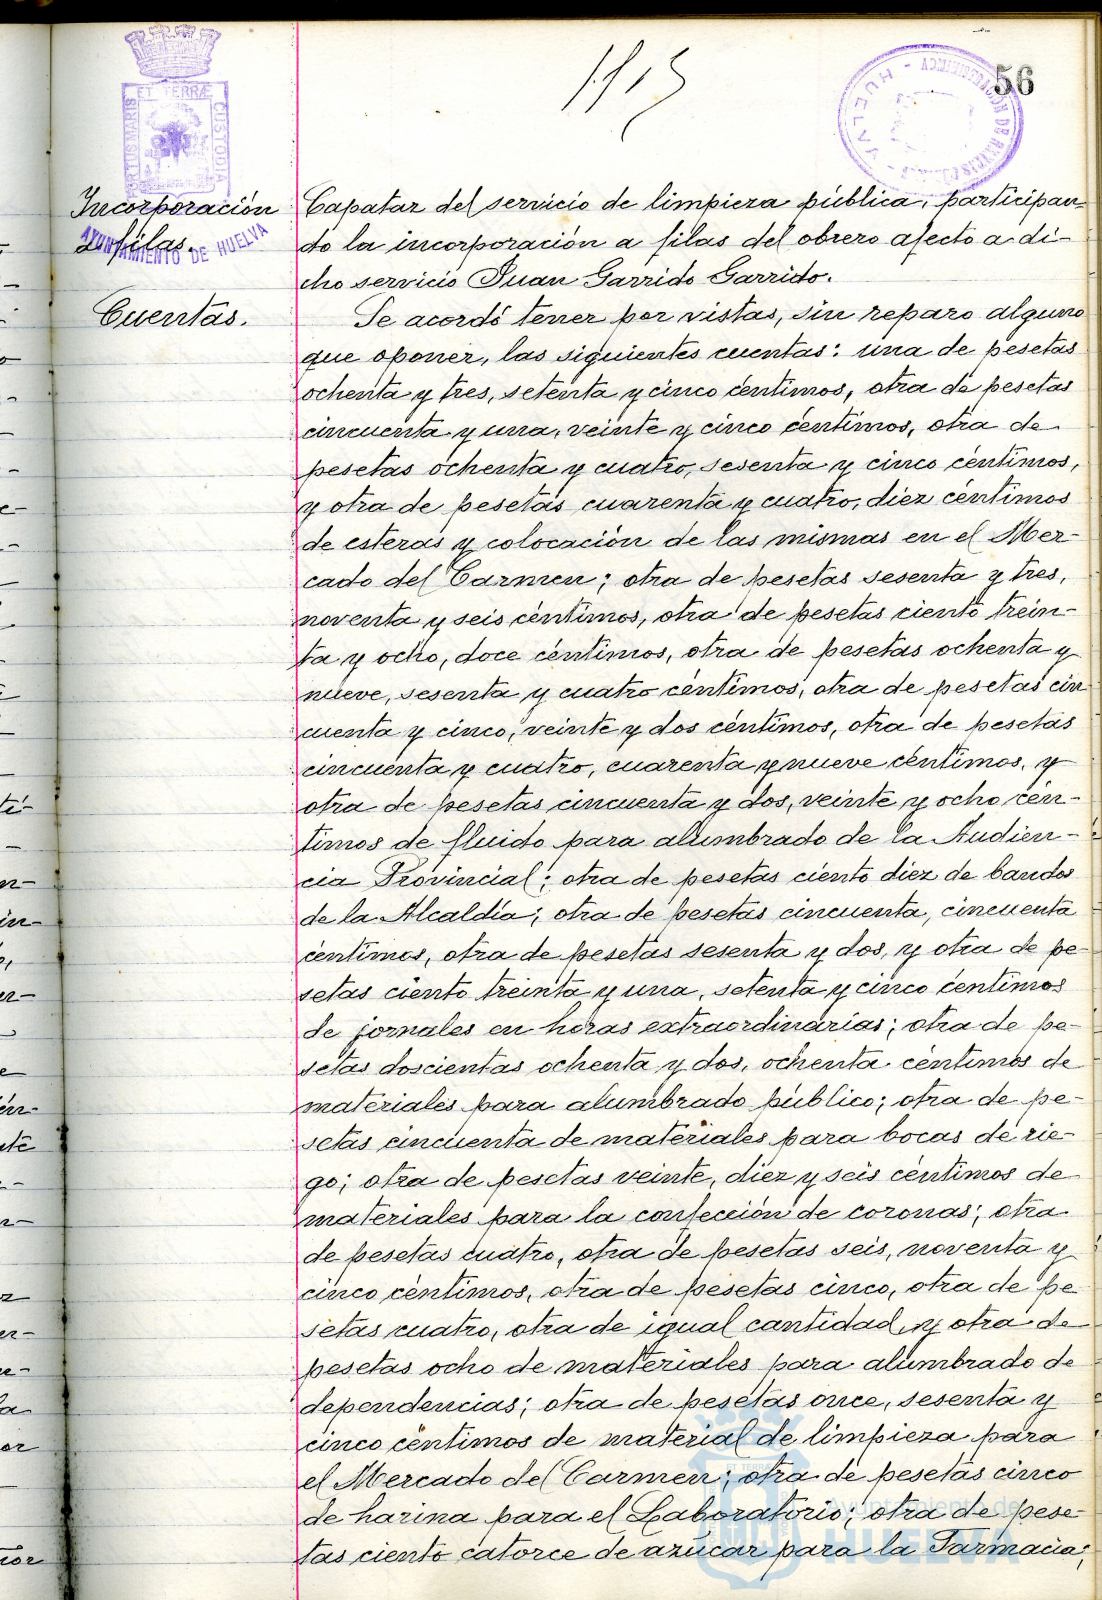 56
ET TERRÆ
CUSTODIA
AYUNTAMIENTO DE HUELVA
HUELVA
Incorporación
a filas.
Capataz del servicio de limpieza pública, participan-
do la incorporación a filas del obrero afecto a di-
cho servicio Juan Garrido Garrido.
Cuentas.
Se acordó tener por vistas, sin reparo alguno
que oponer, las siguientes cuentas: una de pesetas
ochenta y tres, setenta y cinco céntimos, otra de pesetas
cincuenta y una, veinte y cinco céntimos, otra de
pesetas ochenta y cuatro, sesenta y cinco céntimos,
y otra de pesetas cuarenta y cuatro, diez céntimos
de esteras y colocación de las mismas en el Mer-
cado del Carmen; otra de pesetas sesenta y tres,
noventa y seis céntimos, otra de pesetas ciento trein-
ta y ocho, doce céntimos, otra de pesetas ochenta y
nueve, sesenta y cuatro céntimos, otra de pesetas cin
cuenta y cinco, veinte y dos céntimos, otra de pesetas
cincuenta y cuatro, cuarenta y nueve céntimos, y
otra de pesetas cincuenta y dos, veinte y ocho cén-
timos de fluido para alumbrado de la Audien-
cia Provincial; otra de pesetas ciento diez de bandos
de la Alcaldía; otra de pesetas cincuenta, cincuenta
céntimos, otra de pesetas sesenta y dos, y otra de pe-
setas ciento treinta y una, setenta y cinco céntimos
de jornales en horas extraordinarias; otra de pe-
setas doscientas ochenta y dos, ochenta céntimos de
materiales para alumbrado público; otra de pe-
setas cincuenta de materiales para bocas de rie-
go; otra de pesetas veinte, diez y seis céntimos de
materiales para la confección de coronas; otra
de pesetas cuatro, otra de pesetas seis, noventa y
cinco céntimos, otra de pesetas cinco, otra de pe
setas cuatro, otra de igual cantidad, y otra de
pesetas ocho de materiales para alumbrado de
dependencias; otra de pesetas once, sesenta y
cinco céntimos de material de limpieza para
el Mercado del Carmen; otra de pesetas cinco
de harina para el Laboratorio; otra de pese-
tas ciento catorce de azúcar para la Farmacia;
Ayuntamiento de
HUELVA